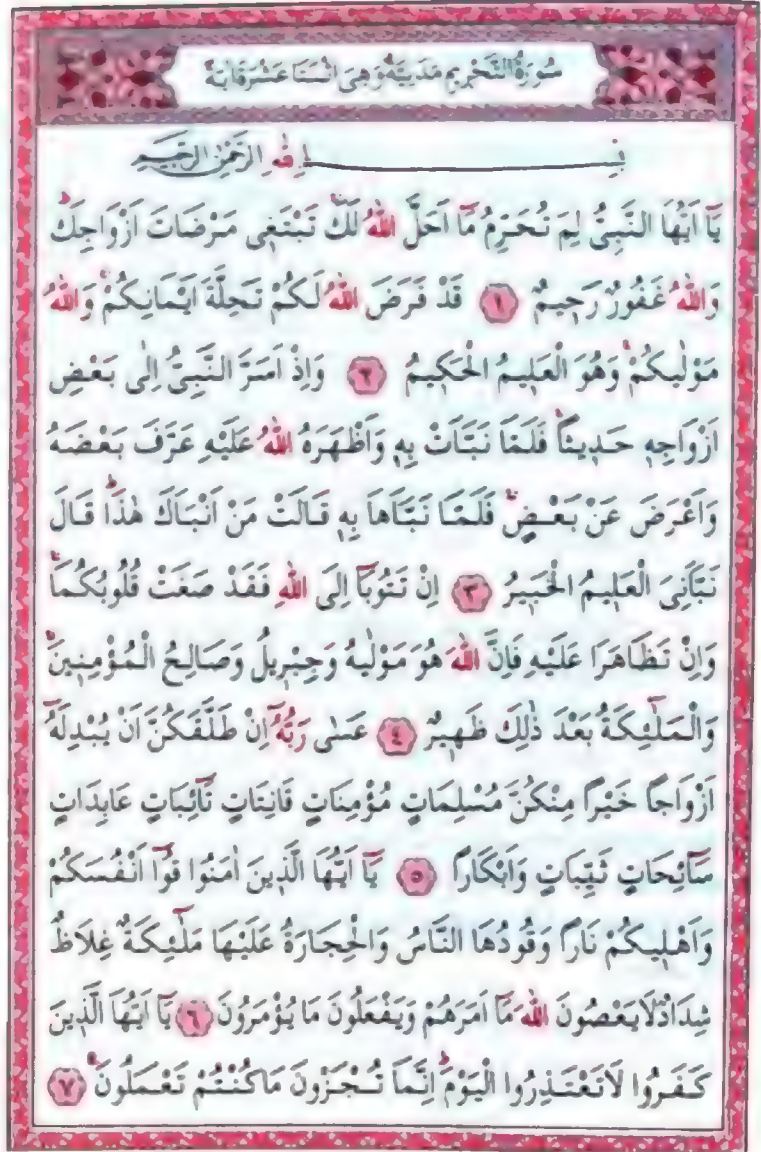 سُورَةُ التَّحْرِيمِ مَدَنِيَّةٌ وَهِيَ اثْنَتَا عَشْرَةَ اٰيَةً
بِسْمِ اللّٰهِ الرَّحْمٰنِ الرَّحِيمِ
يَٓا اَيُّهَا النَّبِيُّ لِمَ تُحَرِّمُ مَٓا اَحَلَّ اللّٰهُ لَكَۚ تَبْتَغ۪ي مَرْضَاتَ اَزْوَاجِكَۜ
وَاللّٰهُ غَفُورٌ رَح۪يمٌ ﴿١﴾ قَدْ فَرَضَ اللّٰهُ لَكُمْ تَحِلَّةَ اَيْمَانِكُمْۚ وَاللّٰهُ
مَوْلٰيكُمْۚ وَهُوَ الْعَل۪يمُ الْحَك۪يمُ ﴿٢﴾ وَاِذْ اَسَرَّ النَّبِيُّ اِلٰى بَعْضِ
اَزْوَاجِه۪ حَد۪يثاًۚ فَلَمَّا نَبَّاَتْ بِه۪ وَاَظْهَرَهُ اللّٰهُ عَلَيْهِ عَرَّفَ بَعْضَهُ
وَاَعْرَضَ عَنْ بَعْضٍۚ فَلَمَّا نَبَّاَهَا بِه۪ قَالَتْ مَنْ اَنْبَاَكَ هٰذَاۜ قَالَ
نَبَّاَنِيَ الْعَل۪يمُ الْخَب۪يرُ ﴿٣﴾ اِنْ تَتُوبَٓا اِلَى اللّٰهِ فَقَدْ صَغَتْ قُلُوبُكُمَاۚ
وَاِنْ تَظَاهَرَا عَلَيْهِ فَاِنَّ اللّٰهَ هُوَ مَوْلٰيهُ وَجِبْر۪يلُ وَصَالِحُ الْمُؤْمِن۪ينَۚ
وَالْمَلٰٓئِكَةُ بَعْدَ ذٰلِكَ ظَه۪يرٌ ﴿٤﴾ عَسٰى رَبُّهُٓ اِنْ طَلَّقَكُنَّ اَنْ يُبْدِلَهُٓ
اَزْوَاجاً خَيْراً مِنْكُنَّ مُسْلِمَاتٍ مُؤْمِنَاتٍ قَانِتَاتٍ تَٓائِبَاتٍ عَابِدَاتٍ
سَٓائِحَاتٍ ثَيِّبَاتٍ وَاَبْكَاراً ﴿٥﴾ يَٓا اَيُّهَا الَّذ۪ينَ اٰمَنُوا قُٓوا اَنْفُسَكُمْ
وَاَهْل۪يكُمْ نَاراً وَقُودُهَا النَّاسُ وَالْحِجَارَةُ عَلَيْهَا مَلٰٓئِكَةٌ غِلَاظٌ
شِدَادٌ لَا يَعْصُونَ اللّٰهَ مَٓا اَمَرَهُمْ وَيَفْعَلُونَ مَا يُؤْمَرُونَ ﴿٦﴾ يَٓا اَيُّهَا الَّذ۪ينَ
كَفَرُوا لَا تَعْتَذِرُوا الْيَوْمَۜ اِنَّمَا تُجْزَوْنَ مَا كُنْتُمْ تَعْمَلُونَ۟ ﴿٧﴾